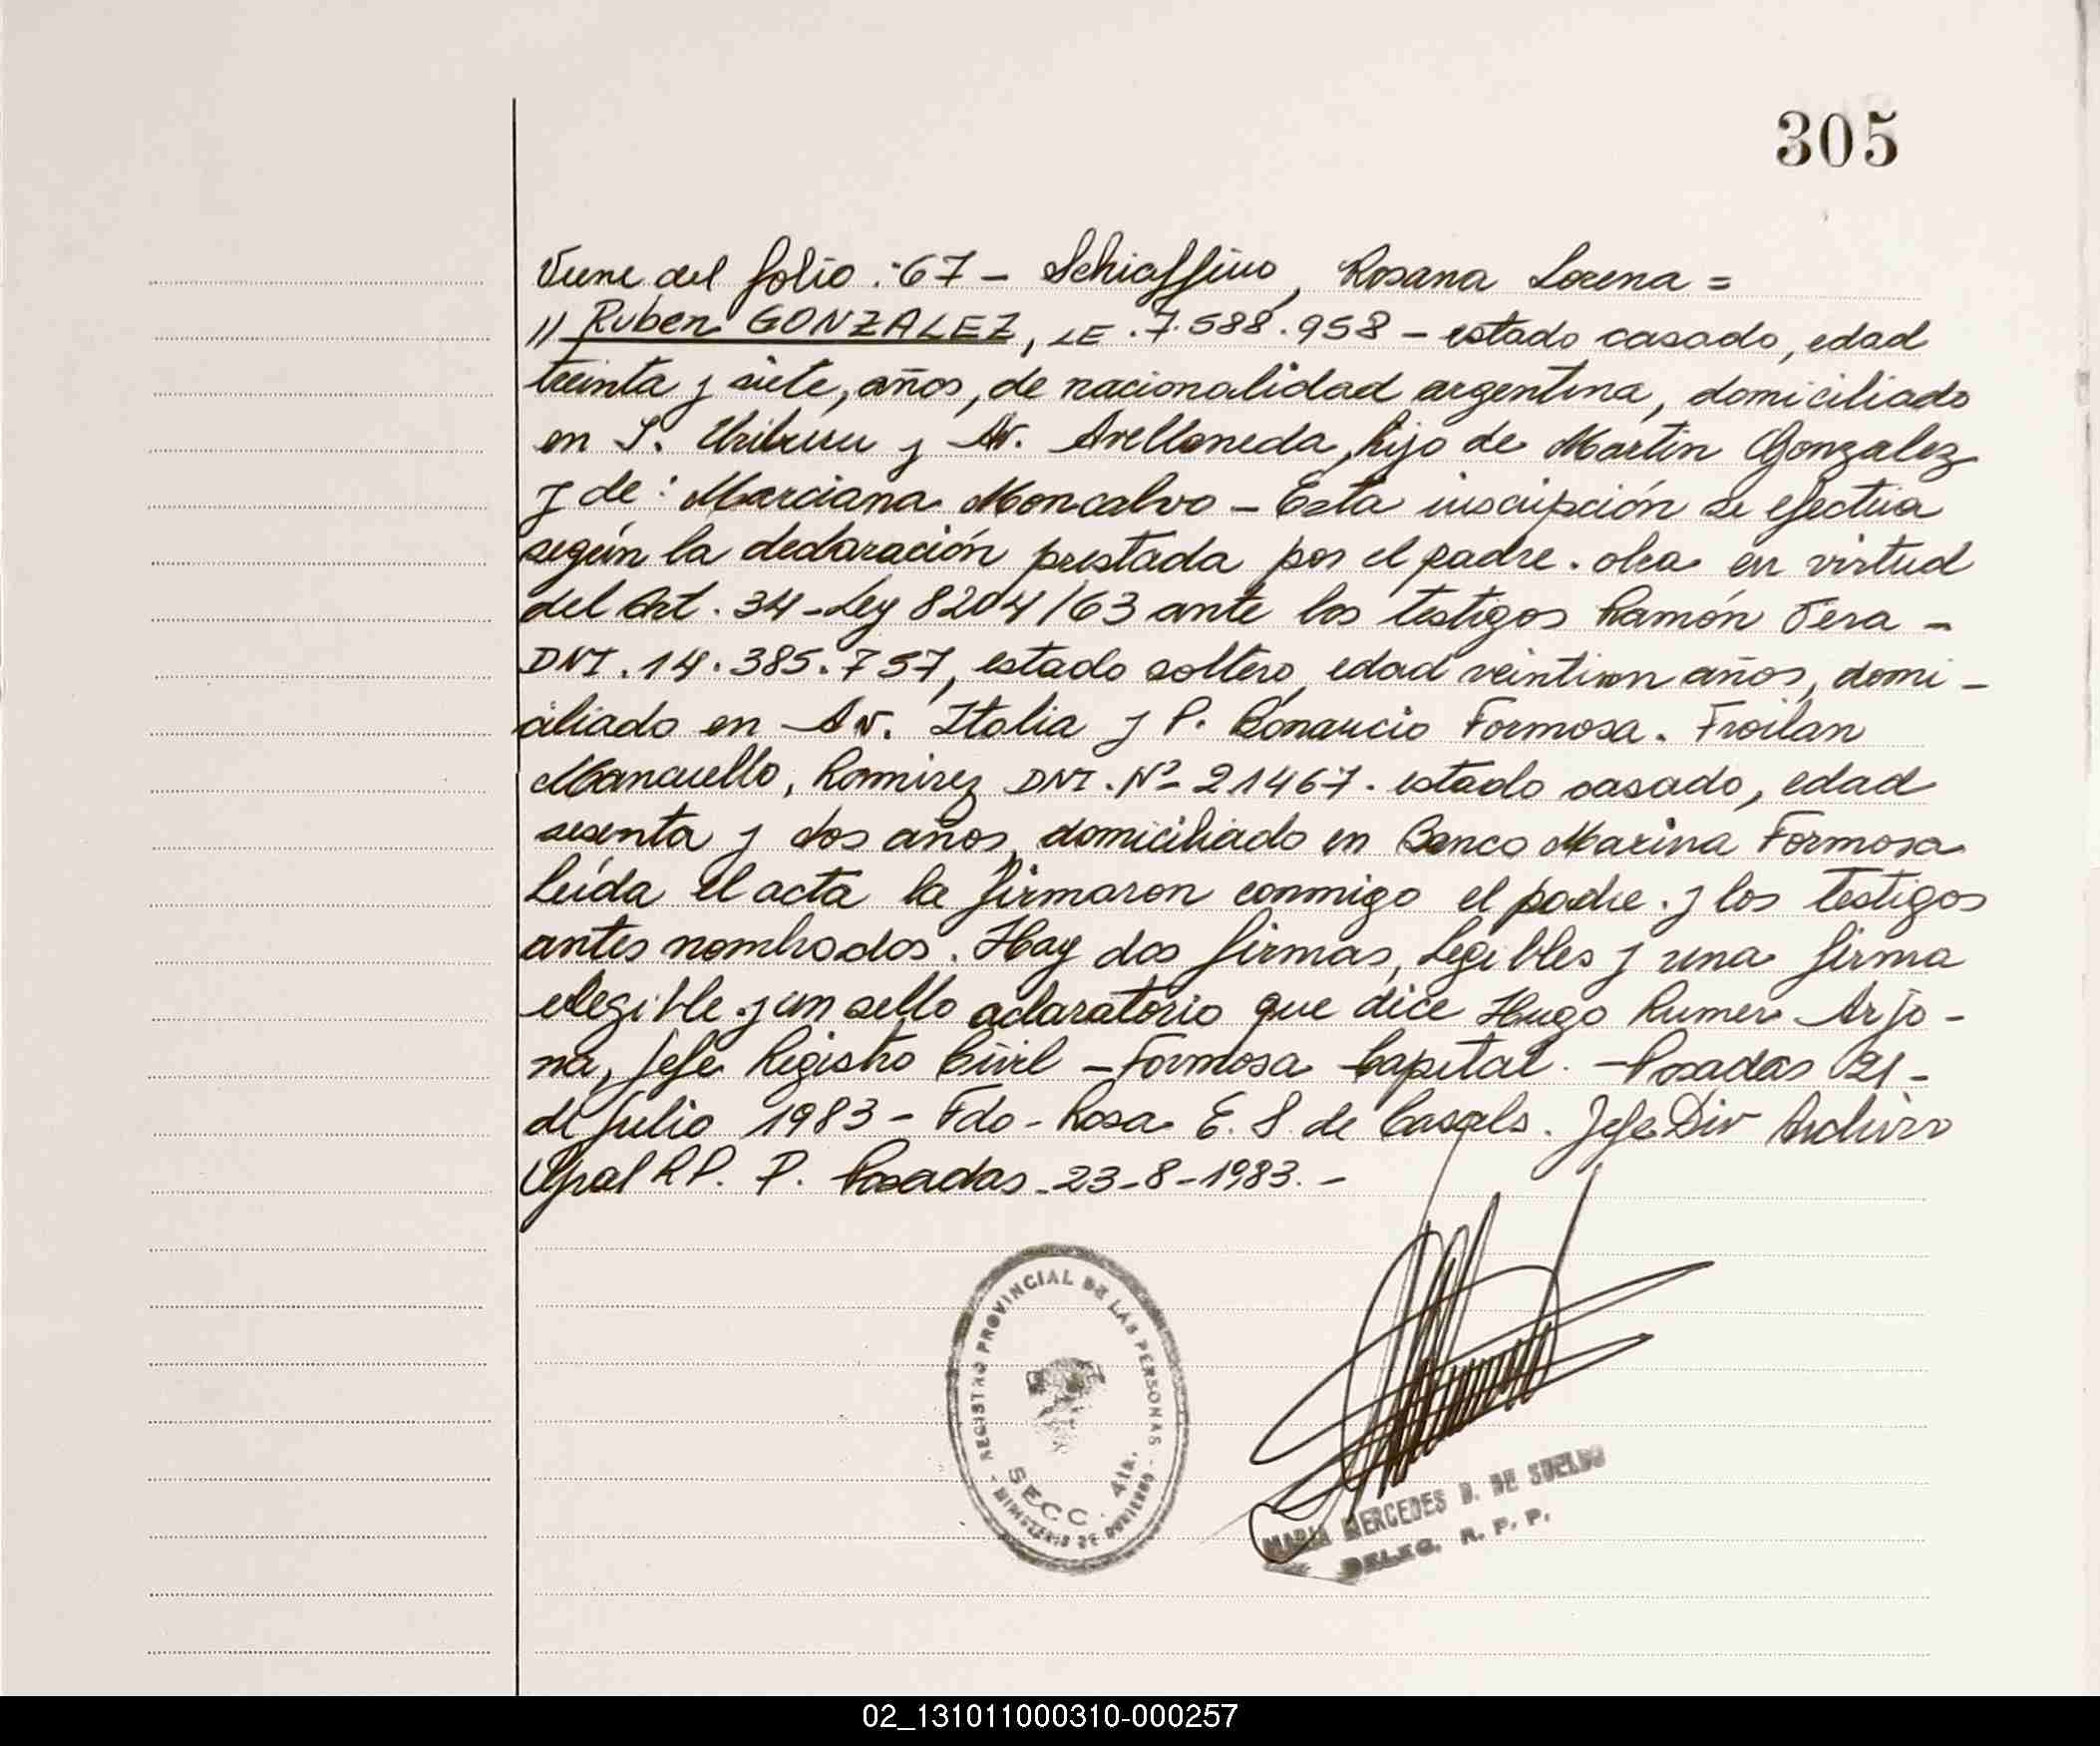 305
Viene del folio: 67 - Schiaffino, Rosana Lorena =
// Ruben GONZALEZ, LE. 7.588.958 - estado casado, edad
treinta y siete, años, de nacionalidad argentina, domiciliado
en P. Uriburu y Av. Avellaneda, hijo de Martin Gonzalez
y de: Marciana Moncalvo - Esta inscripción se efectua
según la declaración prestada por el padre. obra en virtud
del Art. 34 - Ley 8204/63 ante los testigos Ramón Vera -
DNI. 14.385.757, estado soltero, edad veintiun años, domi-
ciliado en Av. Italia y P. Bonaucio Formosa. Froilan
Mancuello, Ramirez DNI. Nº 21467. estado casado, edad
sesenta y dos años, domiciliado en Banco Marina Formosa
Leída el acta la firmaron conmigo el padre. y los testigos
antes nombrados. Hay dos firmas, legibles y una firma
elegible. y un sello aclaratorio que dice Hugo Rumer Arjo-
na, Jefe Registro Civil - Formosa Capital. - Posadas 21 -
de Julio 1983 - Fdo - Rosa E. S. de Casals. Jefe Div Archivo
Gral R.P. P. Posadas - 23-8-1983. -
- REGISTRO PROVINCIAL DE LAS PERSONAS -
SECC. 4ta.
MINISTERIO DE GOBIERNO
MARIA MERCEDES D. DE SUELDO
DELEG. R. P. P.
02_131011000310-000257